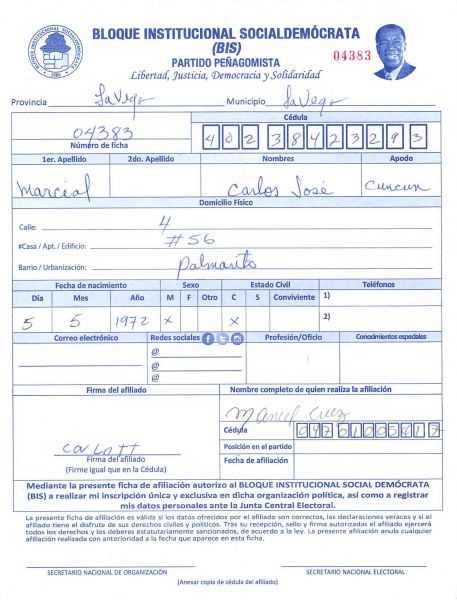 BLOQUE INSTITUCIONAL SOCIALDEMÓCRATA
(BIS)
PARTIDO PEÑAGOMISTA
Libertad, Justicia, Democracia y Solidaridad
04383
Provincia La Vega Municipio La Vega
04383
Número de ficha
Cédula
40238423293
1er. Apellido 2do. Apellido Nombres Apodo
Marcial Carlos José Cuncun
Domicilio Físico
Calle: 4
#Casa / Apt. / Edificio: #56
Barrio / Urbanización: Palmarito
Fecha de nacimiento Sexo Estado Civil Teléfonos
Día Mes Año M F Otro C S Conviviente 1)
5 5 1972 x x 2)
Correo electrónico Redes sociales Profesión/Oficio Conocimientos especiales
@
@
@
Firma del afiliado Nombre completo de quien realiza la afiliación
Manuel Cruz
Cédula 04701005417
Posición en el partido
Fecha de afiliación
Firma del afiliado
(Firme igual que en la Cédula)
Mediante la presente ficha de afiliación autorizo al BLOQUE INSTITUCIONAL SOCIAL DEMÓCRATA
(BIS) a realizar mi inscripción única y exclusiva en dicha organización política, así como a registrar
mis datos personales ante la Junta Central Electoral.
La presente ficha de afiliación es válida si los datos ofrecidos por el afiliado son correctos, las declaraciones veraces y si el
afiliado tiene el disfrute de sus derechos civiles y políticos. Tras su recepción, sello y firma autorizadas el afiliado ejercerá
todos los derechos y los deberes estatutariamente sancionados, de acuerdo a la ley. La presente afiliación anula cualquier
afiliación realizada con anterioridad a la fecha que aparece en esta ficha.
SECRETARIO NACIONAL DE ORGANIZACIÓN SECRETARIO NACIONAL ELECTORAL
(Anexar copia de cédula del afiliado)